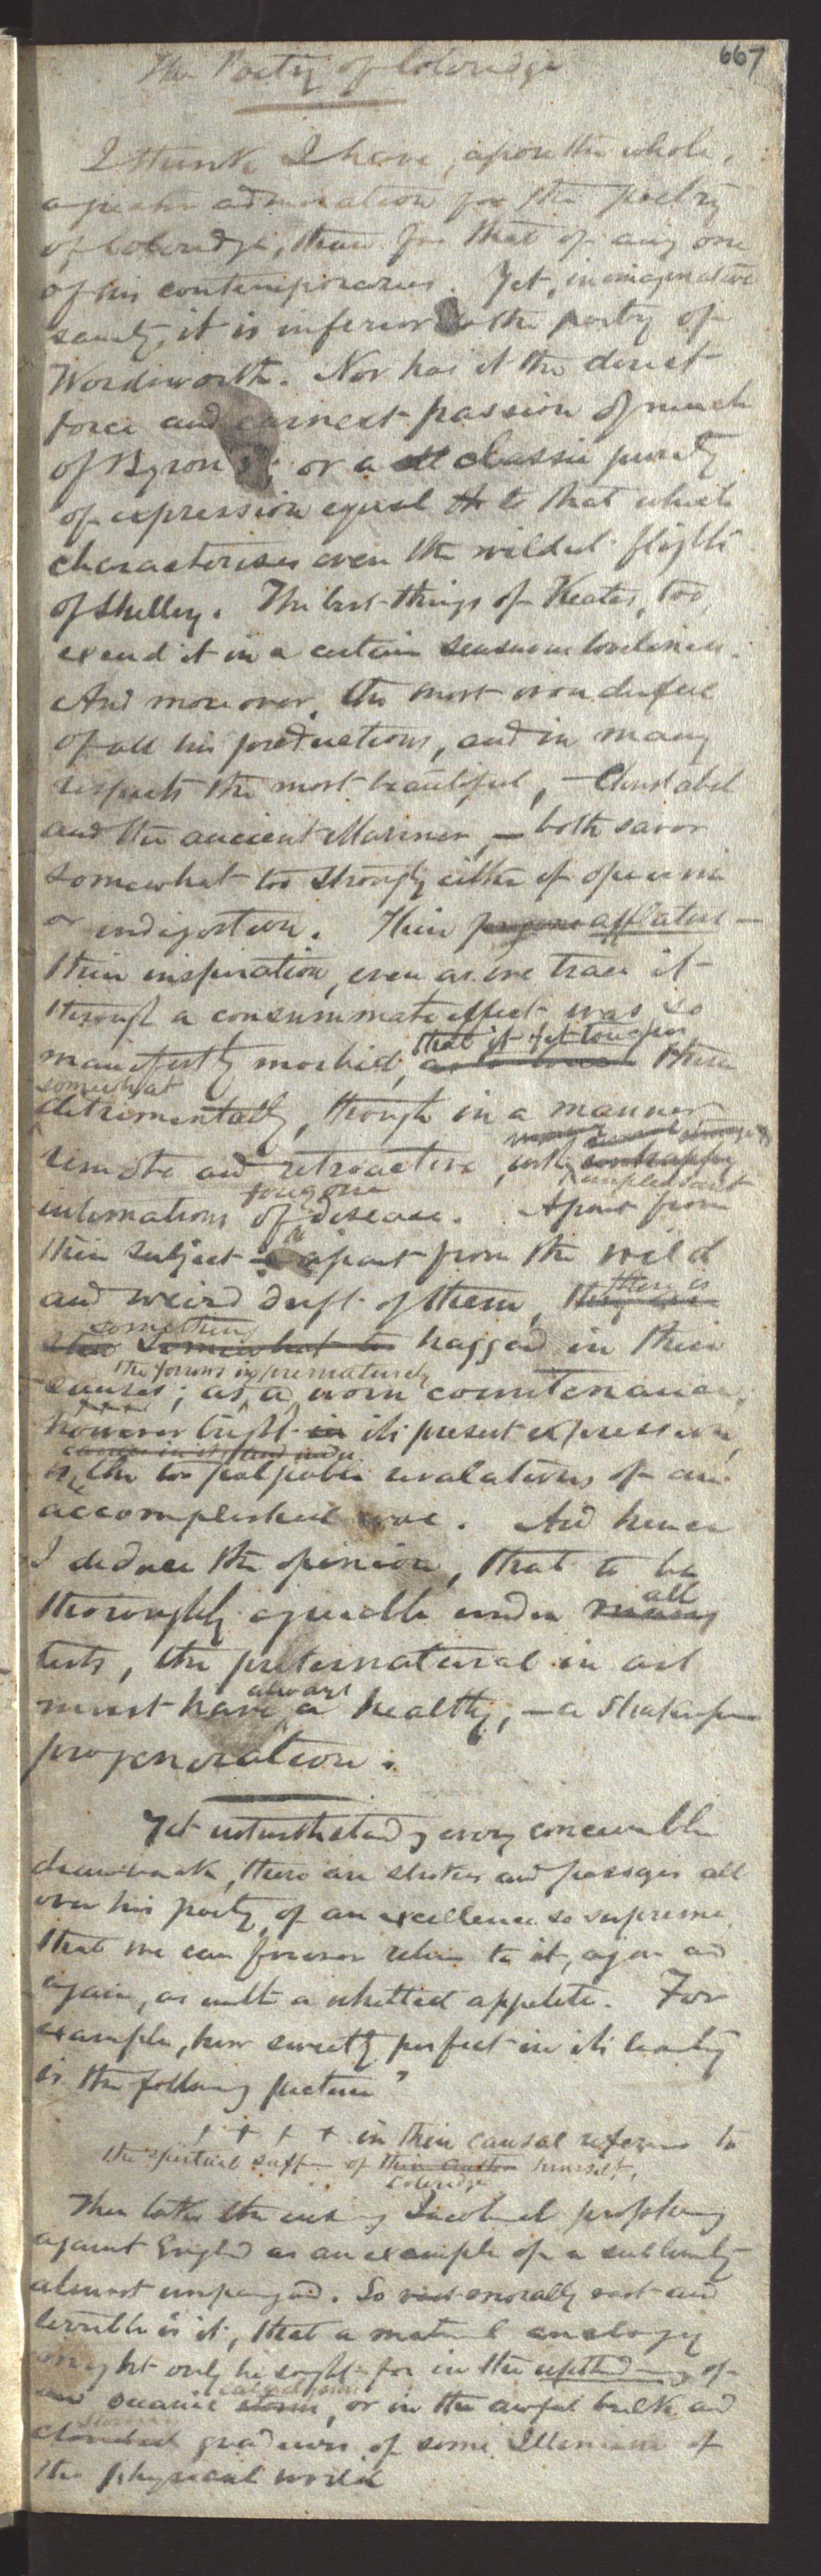 667
The Poetry of Coleridge
I think I have, upon the whole,
a greater admiration for the poetry
of Coleridge, than for that of any one
of his contemporaries. Yet, in imaginative
sanity, it is inferior to the poetry of
Wordsworth. Nor has it the direct
force and earnest passion of much
of Byron's; or a classic purity
of expression equal to that which
characterises even the wildest flights
of Shelley. The best things of Keats, too,
exceed it in a certain sensuous loveliness.
And moreover, the most wonderful
of all his productions, and in many
respects the most beautiful, — Christabel
and the ancient Mariner, — both savor
somewhat too strongly either of opium
or indigestion. Their afflatus —
their inspiration, even as we trace it
through a consummate effect was so
manifestly morbid, that it yet touches them
somewhat
detrimentally, though in a manner
remote and retroactive, with unpleasant
intimations of foregone disease. Apart from
their subject apart from the wild
and weird drift of them, there is
something haggard in their
; as a prematurely worn countenance,
however bright in its present expression,
the too palpable of an
accomplished woe. And hence
I deduce the opinion, that to be
thoroughly agreeable under all
tests, the preternatural in art
must have always a healthy, — a Shakespere
progeneration.
Yet notwithstanding every conceivable
drawback, there are strokes and passages all
over his poetry, of an excellence so supreme
that we can forever return to it, again and
again, as with a whetted appetite. For
example, how sweetly perfect in its beauty
is the following picture?
+ + + + in their causal reference to
the spiritual of their author himself,
Coleridge
Then take the prophecy
against England as an example of a sublimity
almost . So morally vast and
terrible is it, that a material analogy
might only be sought for in the of
oceanic storm, or in the awful bulk and
clouded grandeurs of some of
the physical world